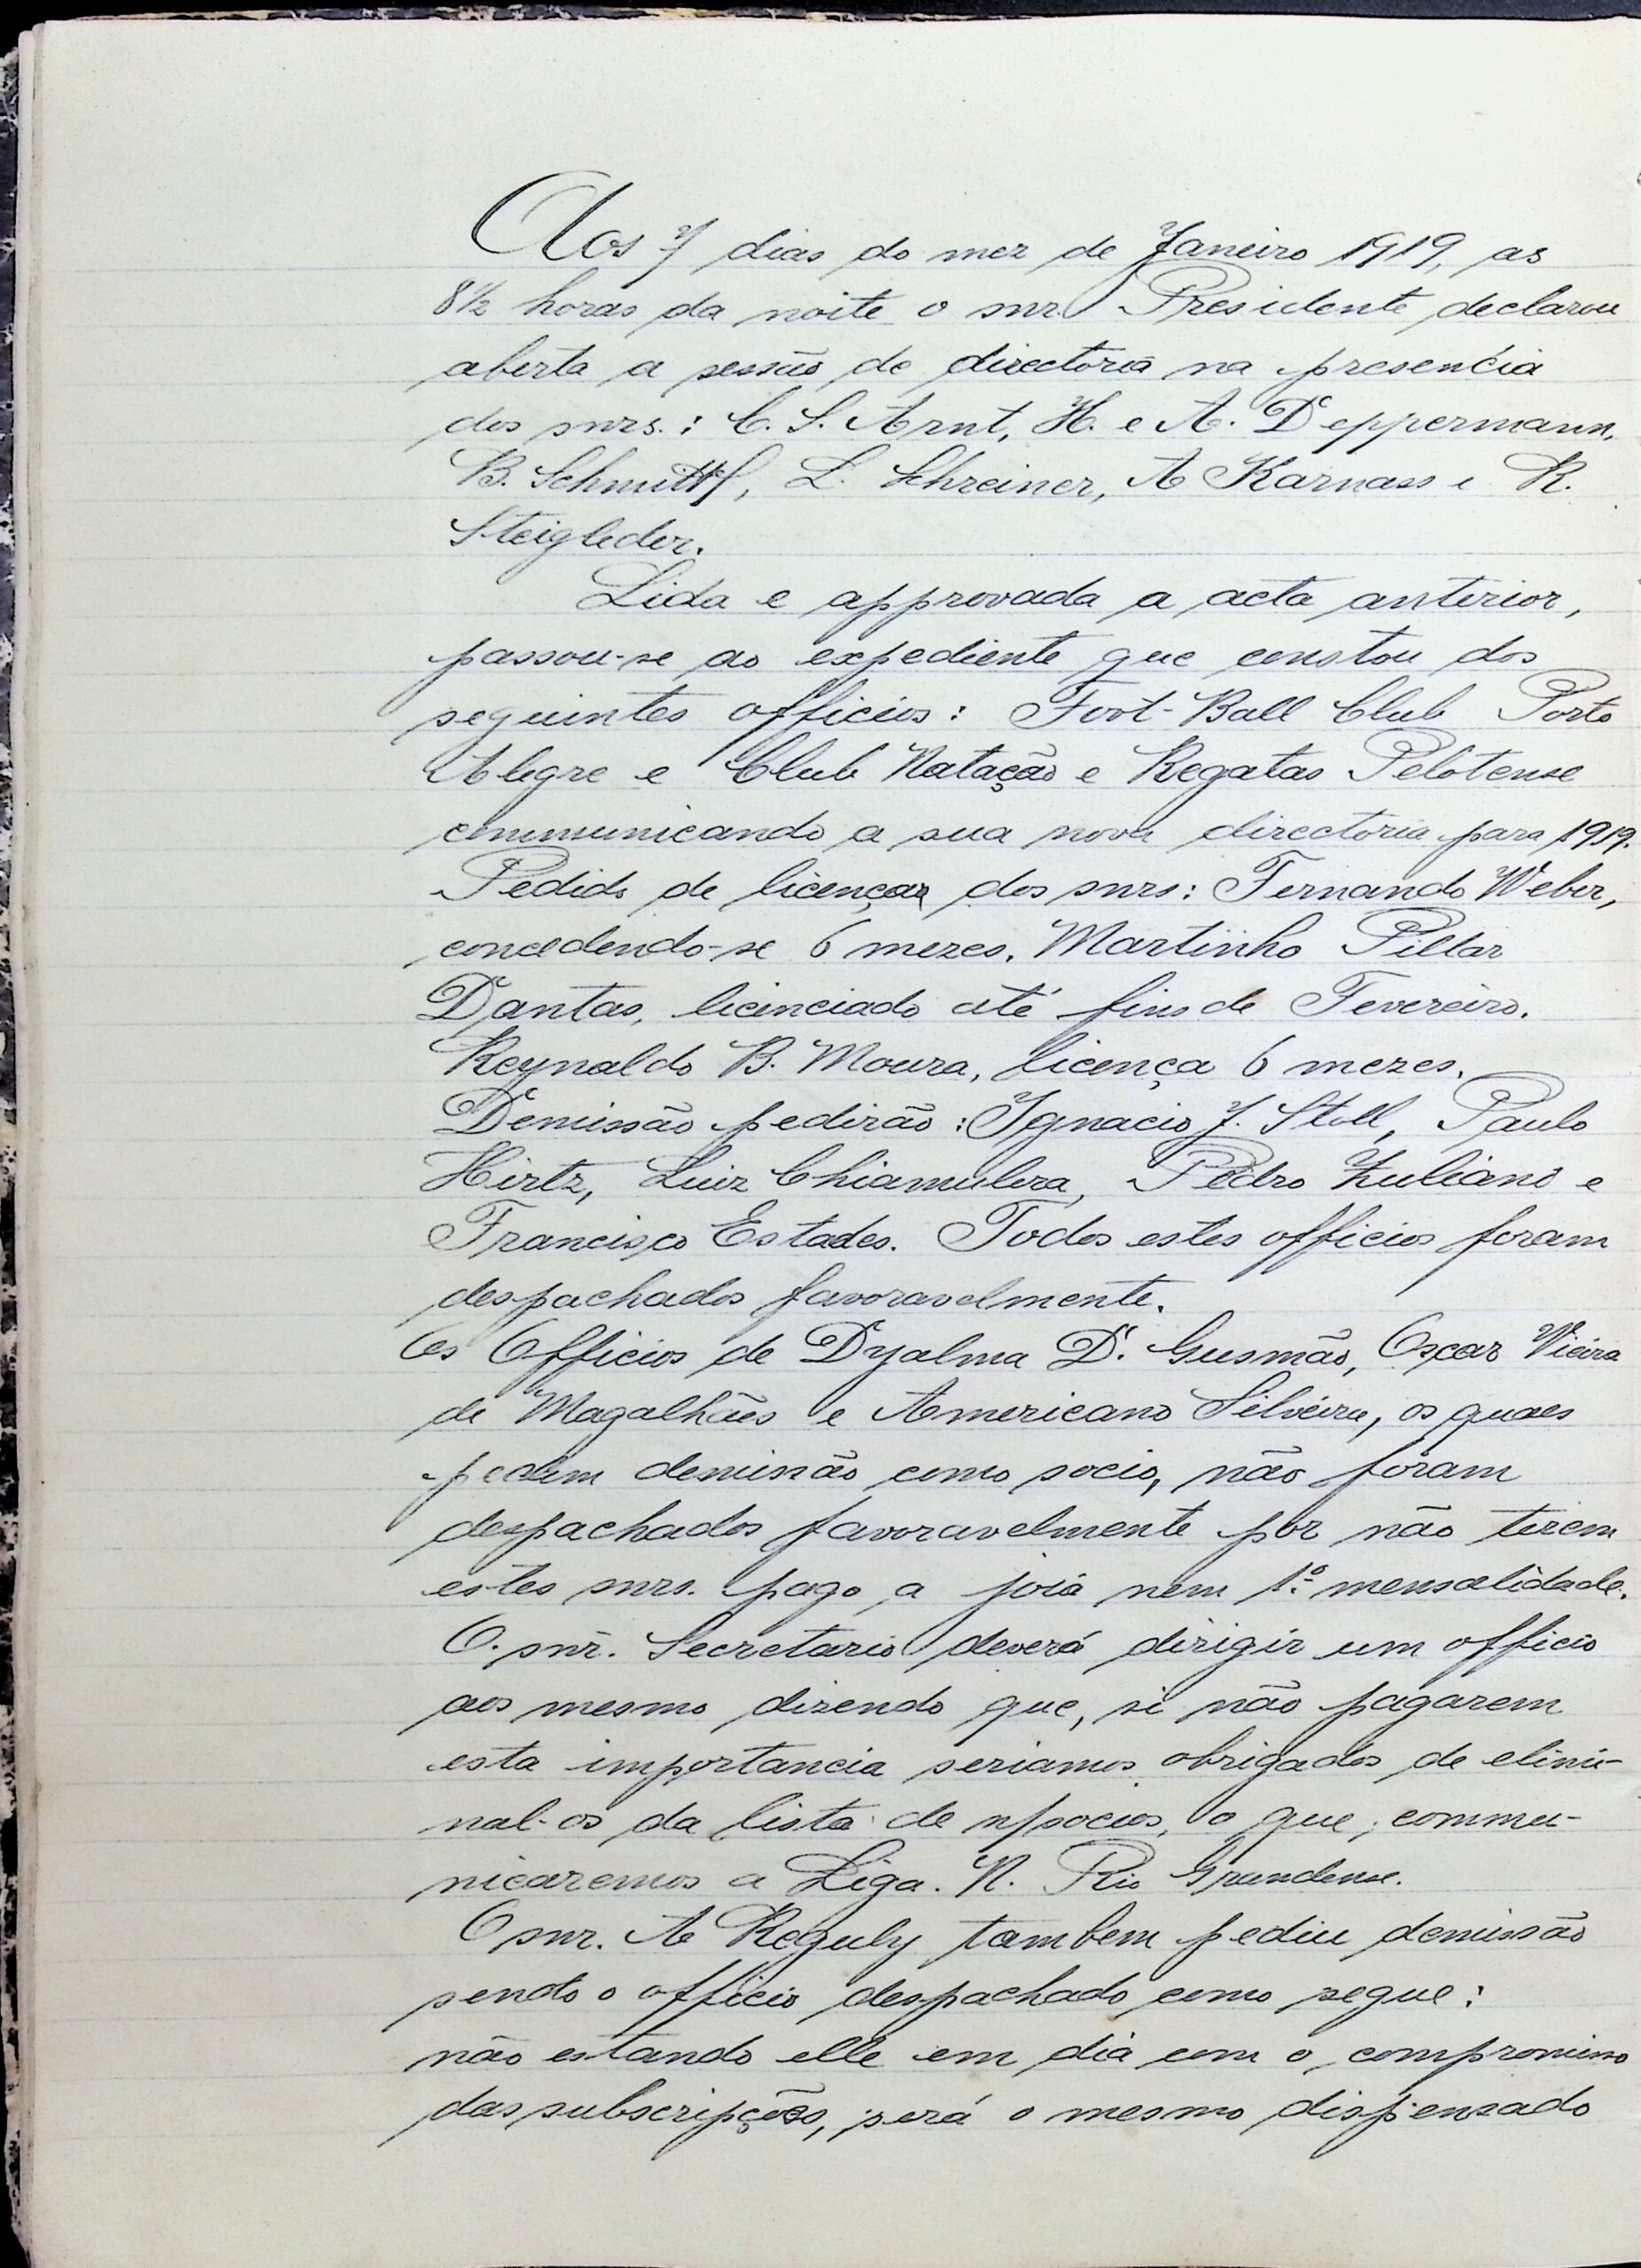 Aos 7 dias do mez de Janeiro 1919, as
8½ horas da noite o snr. Presidente declarou
aberta a sessão de directoria na presencia
dos snrs.: C. S. Arnt, H. e A. Deppermann,
B. Schmitt, L. Schreiner, A Karnass e R.
Steigleder.
Lida e approvada a acta anterior,
passou-se ao expediente que constou dos
seguintes officios: Foot-Ball Club Porto
Alegre e Club Natação e Regatas Pelotense
communicando a sua nova directoria para 1919.
Pedido de licenças dos snrs: Fernando Weber,
concedendo-se 6 mezes. Martinho Pillar
Dantas, licenciado até fins de Fevereiro.
Reynaldo B. Moura, licença 6 mezes.
Demissão pedirão: Ignacio J. Stoll, Paulo
Hirtz, Luiz Chiamulera, Pedro Zuliano e
Francisco Estades. Todos estes officios foram
despachados favoravelmente.
Os Officios de Dyalma D. Gusmão, Oscar Vieira
de Magalhães e Americano Silveira, os quaes
pedem demissão como socio, não foram
despachados favoravelmente por não terem
estes snrs. pago a joia nem 1ª mensalidade.
O snr. Secretario deverá dirigir um officio
aos mesmo dizendo que, si não pagarem
esta importancia seriamos obrigados de elimi-
nal-os da lista de socios, o que, commu-
nicaremos a Liga. N. Rio Grandense.
O snr. A Reguly tambem pediu demissão
sendo o officio despachado como segue:
não estando elle em dia com o compromisso
das subscripções, será o mesmo dispensado